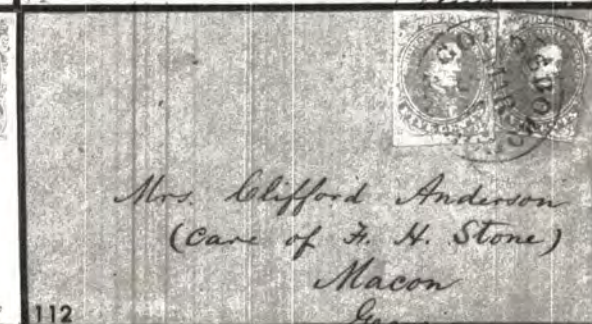 Mrs. Clifford Anderson
(Care of F. H. Stone)
Macon
112